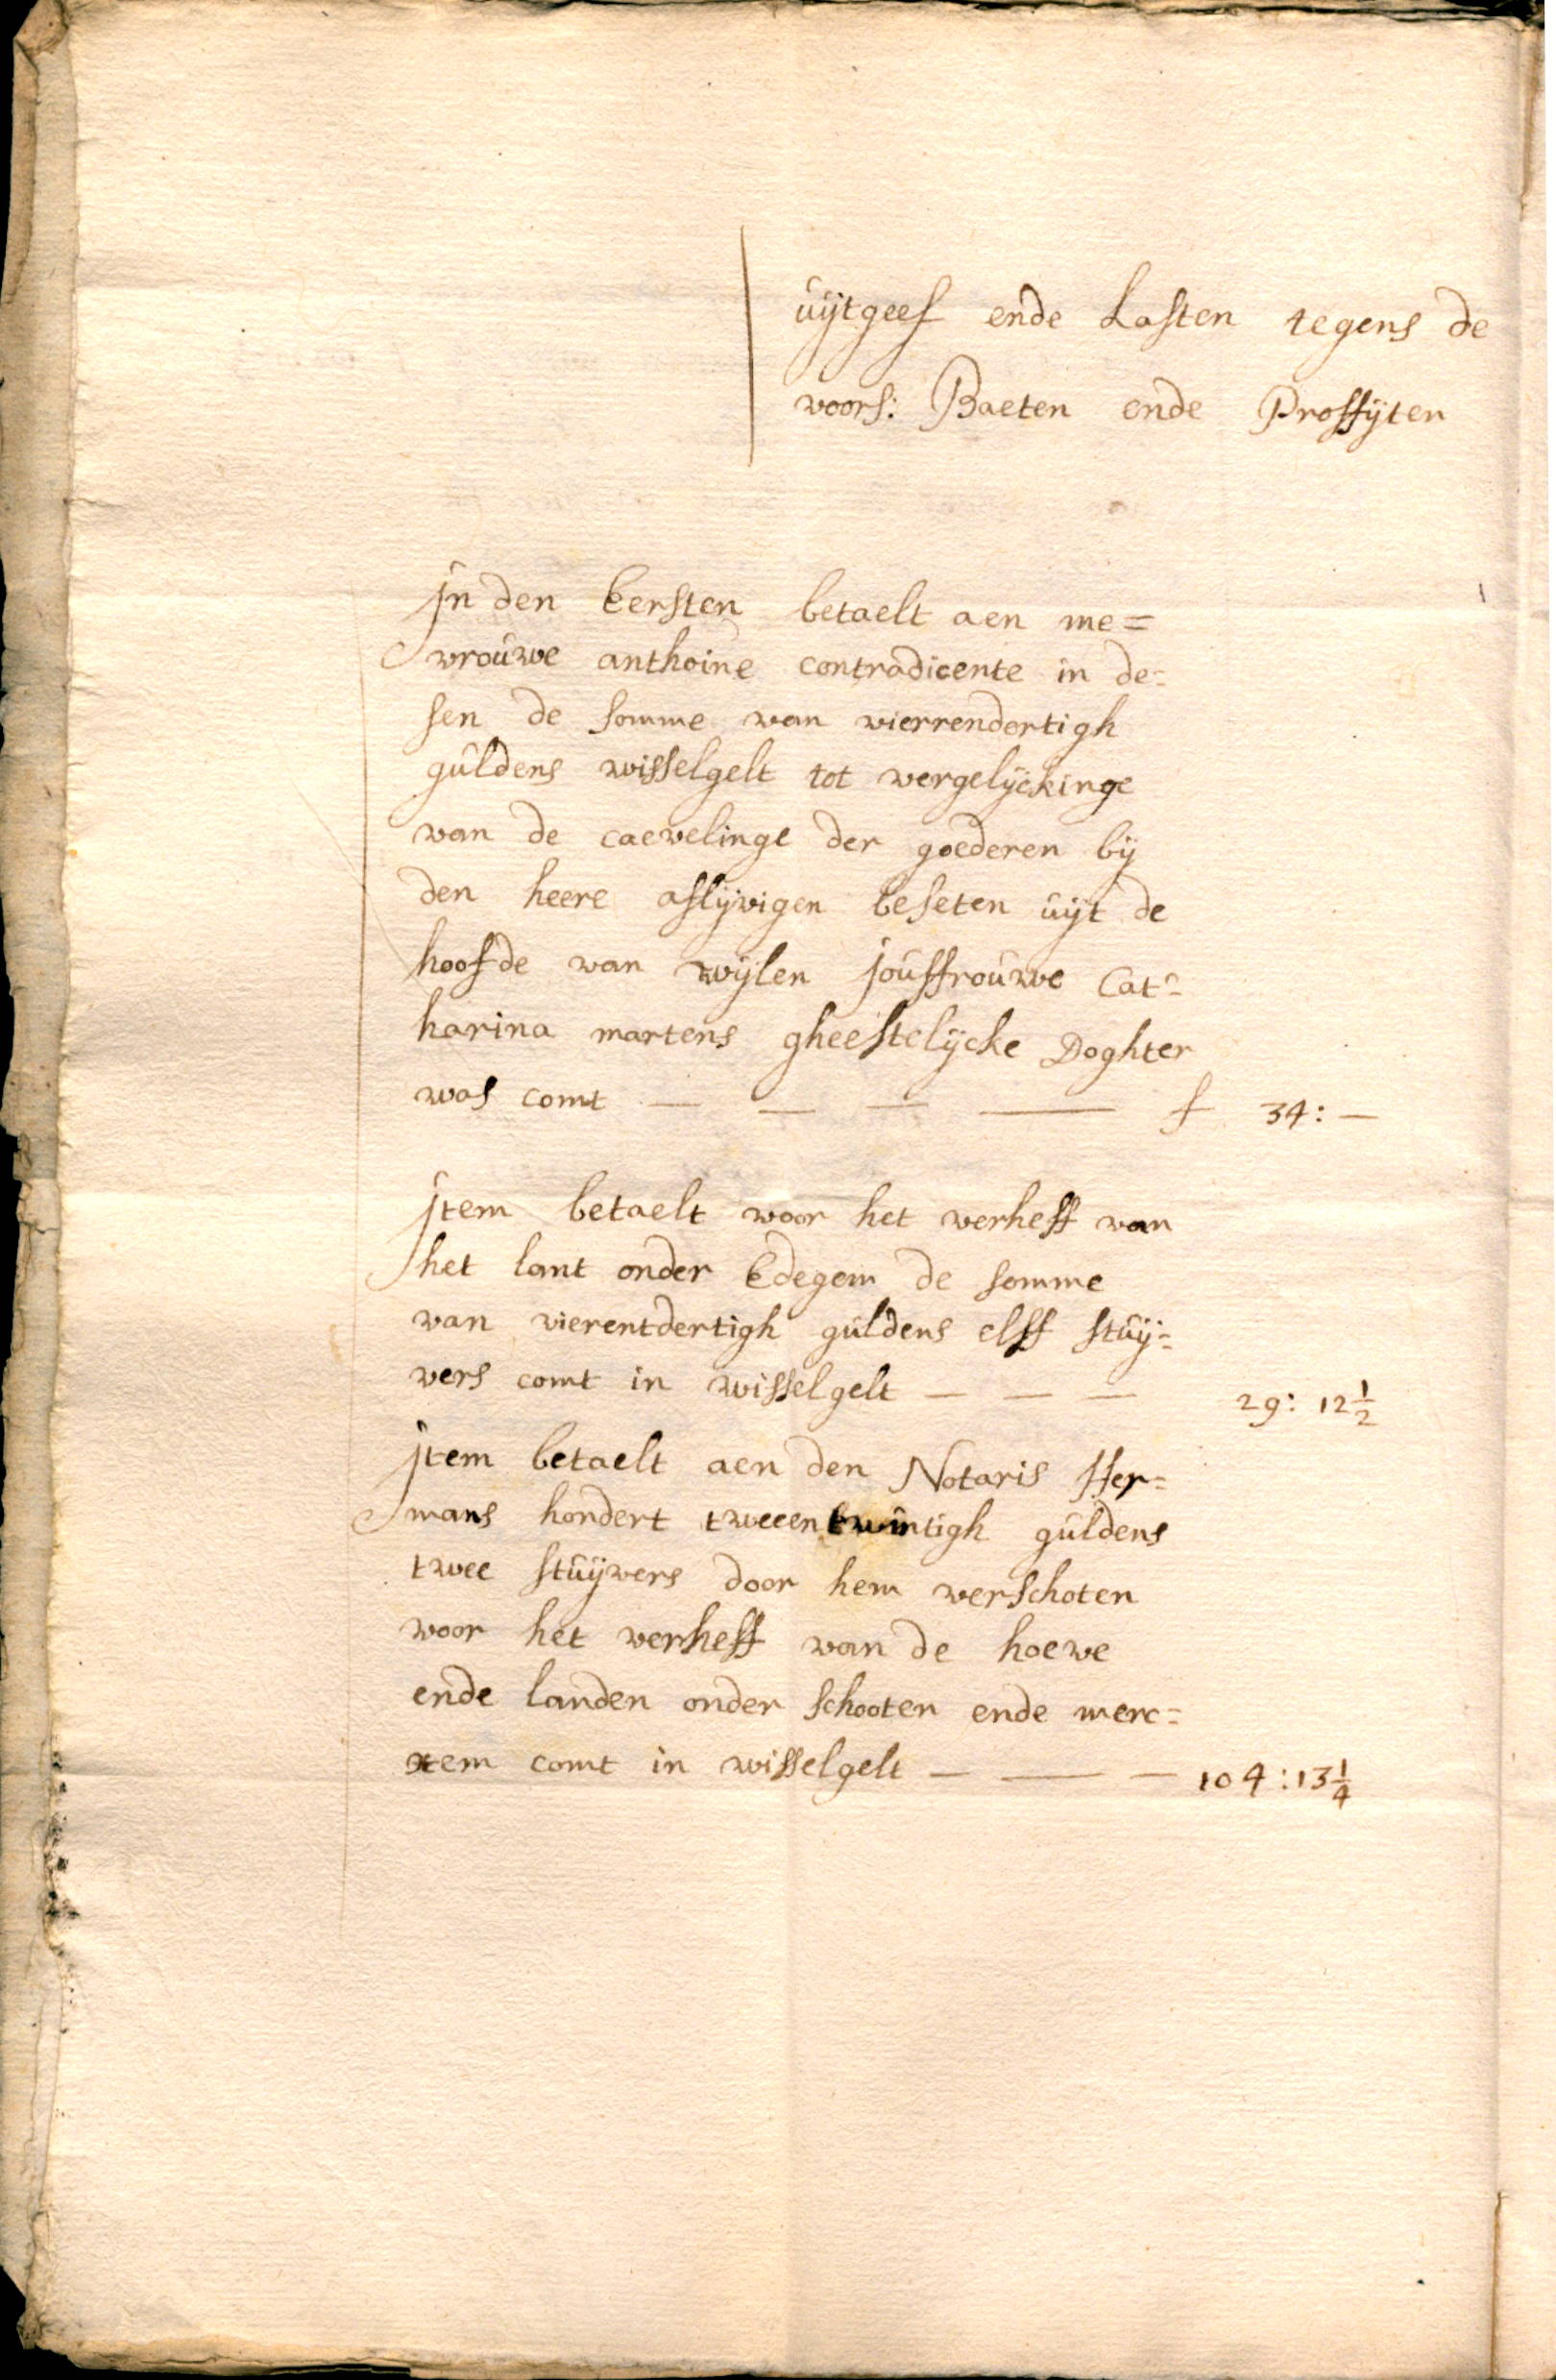 uijtgeef ende Lasten tegens de
voors: Baeten ende Proffijten
jn den Eersten betaelt aen me=
vrouwe anthoine contradicente in de=
sen de somme van vierrendertigh
guldens wisselgelt tot vergelijckinge
van de caevelinge der goederen bij
den heere aflijvigen beseten uijt de
hoofde van wijlen jouffrouwe Cat=
harina martens gheestelijcke Doghter
was comt — — — — f 34: —
jtem betaelt voor het verheff van
het lant onder Edegem de somme
van vierentdertigh guldens elff stuij=
vers comt in wisselgelt — — — 29: 12 1/2
jtem betaelt aen den Notaris Her=
mans hondert tweeentwintigh guldens
twee stuijvers door hem verschoten
voor het verheff van de hoeve
ende landen onder schooten ende merc=
xem comt in wisselgelt — — — 104: 13 1/4